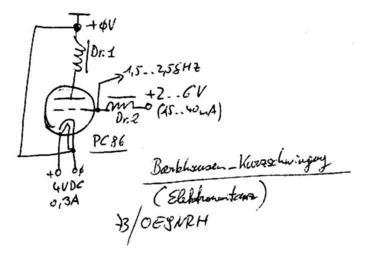 +ØV
Dr.1
1,5...2,5GHZ
+2...6V
(15...40mA)
Dr.2
PC86
+ Ø
4VDC
0,3A
Barkhausen-Kurzschwingung
(Elektronentanz)
73/OE5NRH